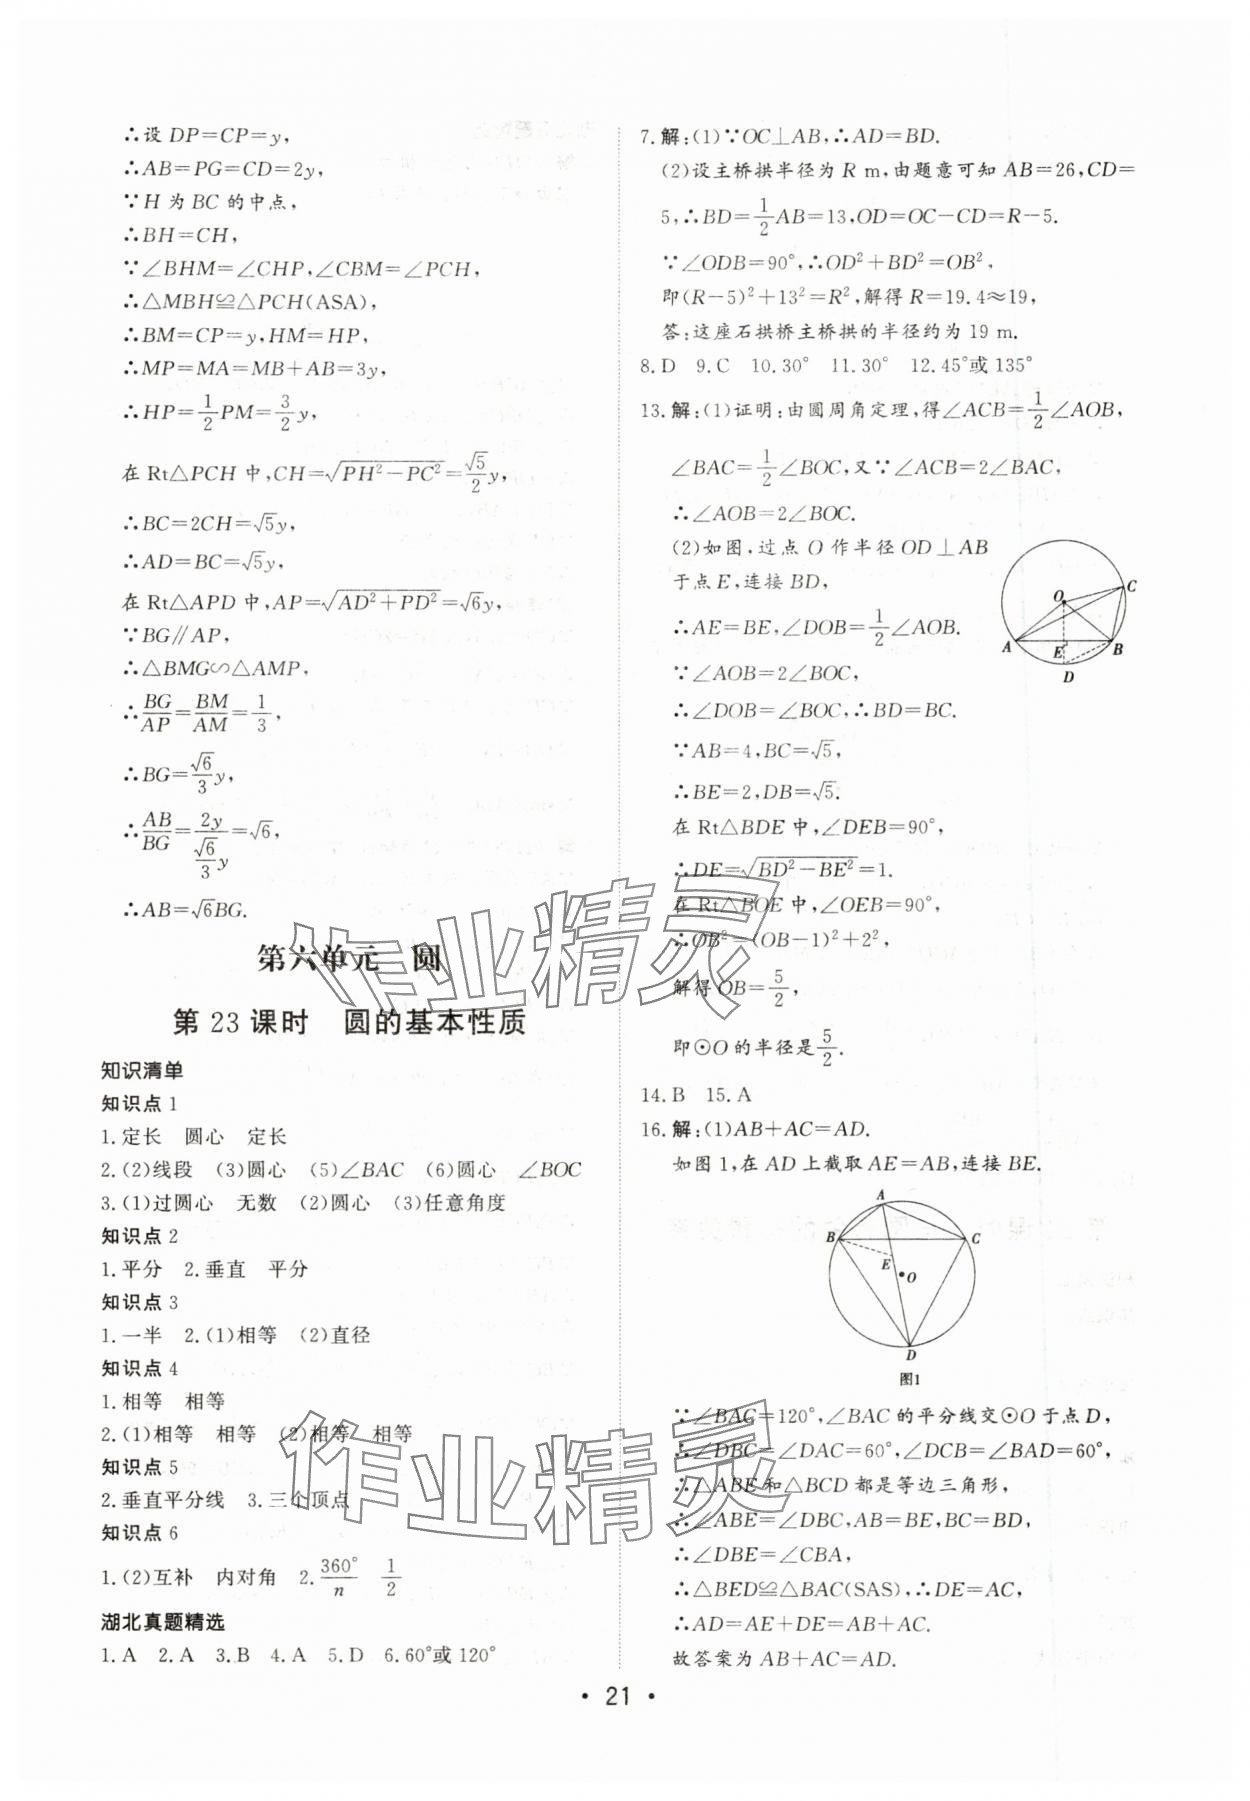 ∴设 DP=CP=y,
∴AB=PG=CD=2y,
∵H 为 BC 的中点,
∴BH=CH,
∵∠BHM=∠CHP,∠CBM=∠PCH,
∴△MBH≌△PCH(ASA),
∴BM=CP=y,HM=HP,
∴MP=MA=MB+AB=3y,
∴HP=1/2PM=3/2y,
在 Rt△PCH 中,CH=√(PH²-PC²)=√5/2y,
∴BC=2CH=√5y,
∴AD=BC=√5y,
在 Rt△APD 中,AP=√(AD²+PD²)=√6y,
∵BG∥AP,
∴△BMG∽△AMP,
∴BG/AP=BM/AM=1/3,
∴BG=√6/3y,
∴AB/BG=2y/(√6/3y)=√6,
∴AB=√6BG.
第六单元 圆
第 23 课时 圆的基本性质
知识清单
知识点 1
1.定长 圆心 定长
2.(2)线段 (3)圆心 (5)∠BAC (6)圆心 ∠BOC
3.(1)过圆心 无数 (2)圆心 (3)任意角度
知识点 2
1.平分 2.垂直 平分
知识点 3
1.一半 2.(1)相等 (2)直径
知识点 4
1.相等 相等
2.(1)相等 相等 (2)相等 相等
知识点 5
2.垂直平分线 3.三个顶点
知识点 6
1.(2)互补 内对角 2.360°/n 1/2
湖北真题精选
1.A 2.A 3.B 4.A 5.D 6.60°或120°
7.解:(1)∵OC⊥AB,∴AD=BD.
(2)设主桥拱半径为 R m,由题意可知 AB=26,CD=
5,∴BD=1/2AB=13,OD=OC-CD=R-5.
∵∠ODB=90°,∴OD²+BD²=OB²,
即(R-5)²+13²=R²,解得 R=19.4≈19,
答:这座石拱桥主桥拱的半径约为 19 m.
8.D 9.C 10.30° 11.30° 12.45°或 135°
13.解:(1)证明:由圆周角定理,得∠ACB=1/2∠AOB,
∠BAC=1/2∠BOC,又∵∠ACB=2∠BAC,
∴∠AOB=2∠BOC.
(2)如图,过点 O 作半径 OD⊥AB
于点 E,连接 BD,
∴AE=BE,∠DOB=1/2∠AOB.
∵∠AOB=2∠BOC,
∴∠DOB=∠BOC,∴BD=BC.
∵AB=4,BC=√5,
∴BE=2,DB=√5.
在 Rt△BDE 中,∠DEB=90°,
∴DE=√(BD²-BE²)=1.
在 Rt△BOE 中,∠OEB=90°,
∴OB²=(OB-1)²+2²,
解得 OB=5/2,
即⊙O 的半径是5/2.
O
C
A
E
B
D
14.B 15.A
16.解:(1)AB+AC=AD.
如图 1,在 AD 上截取 AE=AB,连接 BE.
A
B
C
E
O
D
图1
∵∠BAC=120°,∠BAC 的平分线交⊙O 于点 D,
∴∠DBC=∠DAC=60°,∠DCB=∠BAD=60°,
∴△ABE 和△BCD 都是等边三角形,
∴∠ABE=∠DBC,AB=BE,BC=BD,
∴∠DBE=∠CBA,
∴△BED≌△BAC(SAS),∴DE=AC,
∴AD=AE+DE=AB+AC.
故答案为 AB+AC=AD.
• 21 •
作业精灵
作业精灵